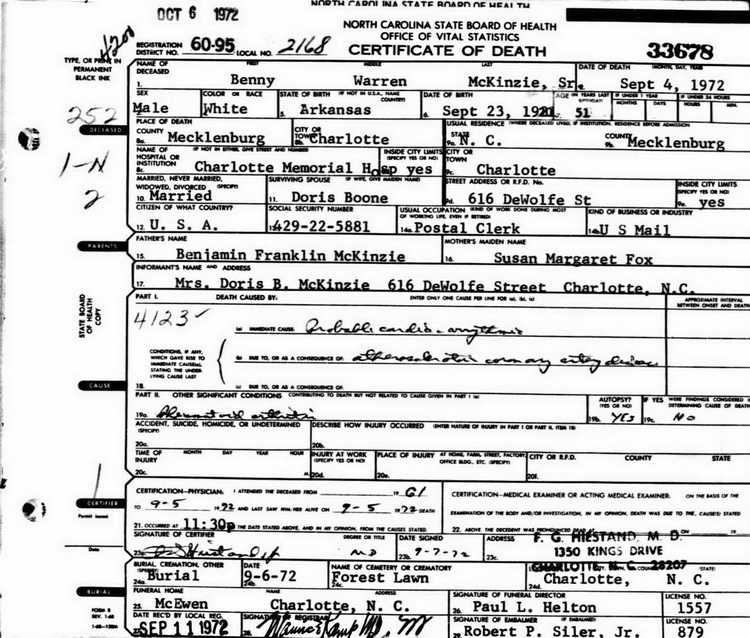 OCT 6 1972
NORTH CAROLINA STATE BOARD OF HEALTH
NORTH CAROLINA STATE BOARD OF HEALTH
OFFICE OF VITAL STATISTICS
CERTIFICATE OF DEATH
4200
TYPE, OR PRINT IN PERMANENT BLACK INK
REGISTRATION DISTRICT NO. 60-95 LOCAL NO. 2168
33678
NAME OF DECEASED FIRST MIDDLE LAST DATE OF DEATH MONTH, DAY, YEAR
1. Benny Warren McKinzie, Sr. Sept 4, 1972
SEX COLOR OR RACE STATE OF BIRTH (IF NOT IN U.S.A., NAME COUNTRY) DATE OF BIRTH AGE IN YEARS LAST BIRTHDAY IF UNDER 1 YEAR IF UNDER 24 HOURS
MONTHS DAYS HOURS MIN.
Male White 5. Arkansas 6. Sept 23, 51
252
DECEASED
PLACE OF DEATH USUAL RESIDENCE (WHERE DECEASED LIVED, IF INSTITUTION, RESIDENCE BEFORE ADMISSION)
COUNTY CITY OR TOWN STATE COUNTY
8a. Mecklenburg Charlotte 9a. N. C. 9b. Mecklenburg
1-N
2
NAME OF HOSPITAL OR INSTITUTION (IF NOT IN EITHER, GIVE STREET AND NUMBER) INSIDE CITY LIMITS (SPECIFY YES OR NO) CITY OR TOWN
8c. Charlotte Memorial Hosp yes 9c. Charlotte
MARRIED, NEVER MARRIED, WIDOWED, DIVORCED (SPECIFY) SURVIVING SPOUSE (IF WIFE, GIVE MAIDEN NAME) STREET ADDRESS OR R.F.D. No. INSIDE CITY LIMITS (SPECIFY YES OR NO)
10. Married 11. Doris Boone 9d. 616 DeWolfe St 9e. yes
CITIZEN OF WHAT COUNTRY? SOCIAL SECURITY NUMBER USUAL OCCUPATION (KIND OF WORK DONE DURING MOST OF WORKING LIFE, EVEN IF RETIRED) KIND OF BUSINESS OR INDUSTRY
12. U. S. A. 13. 429-22-5881 14a. Postal Clerk 14b. U S Mail
PARENTS
FATHER'S NAME MOTHER'S MAIDEN NAME
15. Benjamin Franklin McKinzie 16. Susan Margaret Fox
INFORMANT'S NAME AND ADDRESS
17. Mrs. Doris B. McKinzie 616 DeWolfe Street Charlotte, N.C.
STATE BOARD OF HEALTH COPY
PART I. DEATH CAUSED BY: ENTER ONLY ONE CAUSE PER LINE FOR (a), (b), (c) APPROXIMATE INTERVAL BETWEEN ONSET AND DEATH
4123
(a) IMMEDIATE CAUSE: Probable cardiac arrythmia
CONDITIONS, IF ANY, WHICH GAVE RISE TO IMMEDIATE CAUSE (a), STATING THE UNDERLYING CAUSE LAST
(b) DUE TO, OR AS A CONSEQUENCE OF: atherosclerotic coronary artery disease
18. (c) DUE TO, OR AS A CONSEQUENCE OF:
CAUSE
PART II. OTHER SIGNIFICANT CONDITIONS CONTRIBUTING TO DEATH BUT NOT RELATED TO CAUSE GIVEN IN PART I (a) AUTOPSY? (YES OR NO) IF YES WERE FINDINGS CONSIDERED IN DETERMINING CAUSE OF DEATH
19a. Rheumatoid arthritis 19b. YES 19c. NO
ACCIDENT, SUICIDE, HOMICIDE, OR UNDETERMINED (SPECIFY) DESCRIBE HOW INJURY OCCURRED (ENTER NATURE OF INJURY IN PART I OR PART II, ITEM 18)
20a. 20b.
TIME OF INJURY MONTH DAY YEAR HOUR INJURY AT WORK (SPECIFY YES OR NO) PLACE OF INJURY AT HOME, FARM, STREET, FACTORY, OFFICE BLDG., ETC. (SPECIFY) CITY OR R.F.D. COUNTY STATE
20c. M 20d. 20e. 20f.
CERTIFIER
Permit issued
Date
CERTIFICATION—PHYSICIAN: I ATTENDED THE DECEASED FROM 19 61
TO 9-5 1972 AND LAST SAW HIM/HER ALIVE ON 9-5 1972 DEATH
21. OCCURRED AT 11:30p THE DATE STATED ABOVE, AND IN MY OPINION, FROM THE CAUSES STATED
CERTIFICATION—MEDICAL EXAMINER OR ACTING MEDICAL EXAMINER: ON THE BASIS OF THE
EXAMINATION OF THE BODY AND/OR INVESTIGATION, IN MY OPINION, DEATH WAS DUE TO THE, CAUSE(S) STATED
22. ABOVE THE DECEASED WAS PRONOUNCED DEAD
SIGNATURE OF CERTIFIER DEGREE OR TITLE DATE SIGNED ADDRESS
MD 9-7-72
F. G. HIESTAND, M. D.
1350 KINGS DRIVE
CHARLOTTE, N. C. 28207
BURIAL
BURIAL, CREMATION, OTHER (SPECIFY) DATE NAME OF CEMETERY OR CREMATORY STATE
24a. Burial 9-6-72 Forest Lawn 24d. Charlotte, N. C.
FUNERAL HOME ADDRESS SIGNATURE OF FUNERAL DIRECTOR LICENSE NO.
25. McEwen Charlotte, N. C. 26. Paul L. Helton 1557
FORM 8
REV. 1-68
DATE REC'D BY LOCAL REG. SIGNATURE REGISTRAR SIGNATURE OF EMBALMER LICENSE NO.
SEP 11 1972 Robert P. Siler, Jr. 879